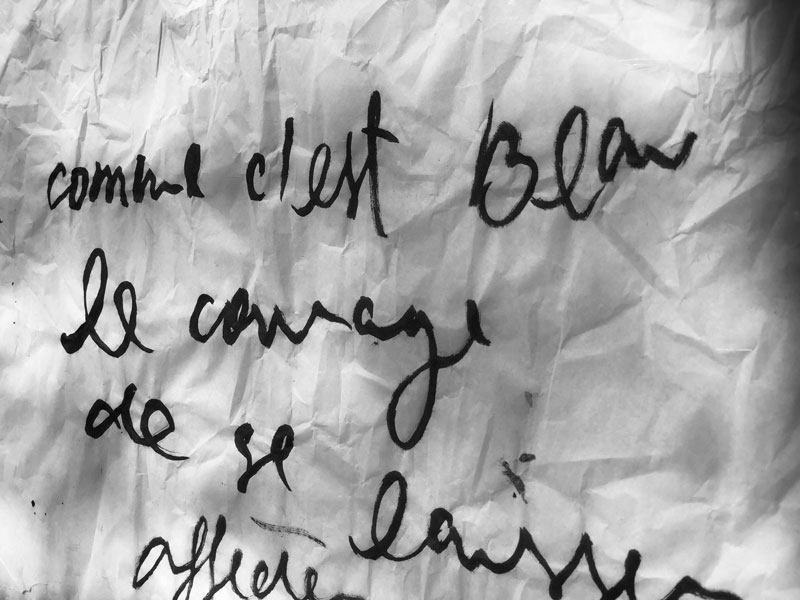 comme c'est Beau
le courage
de se
laisser